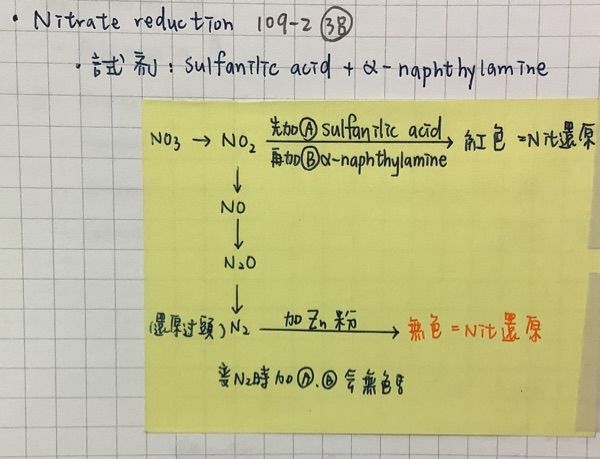 • Nitrate reduction 109-2 38
• 試剂: sulfanilic acid + α-naphthylamine
NO3 → NO2 先加Ⓐ sulfanilic acid → 紅色 = Nit還原
再加Ⓑ α-naphthylamine
↓
NO
↓
N2O
↓
(還原过頭) N2 加 Zn 粉 → 無色 = Nit還原
變N2時加Ⓐ.Ⓑ 会無色